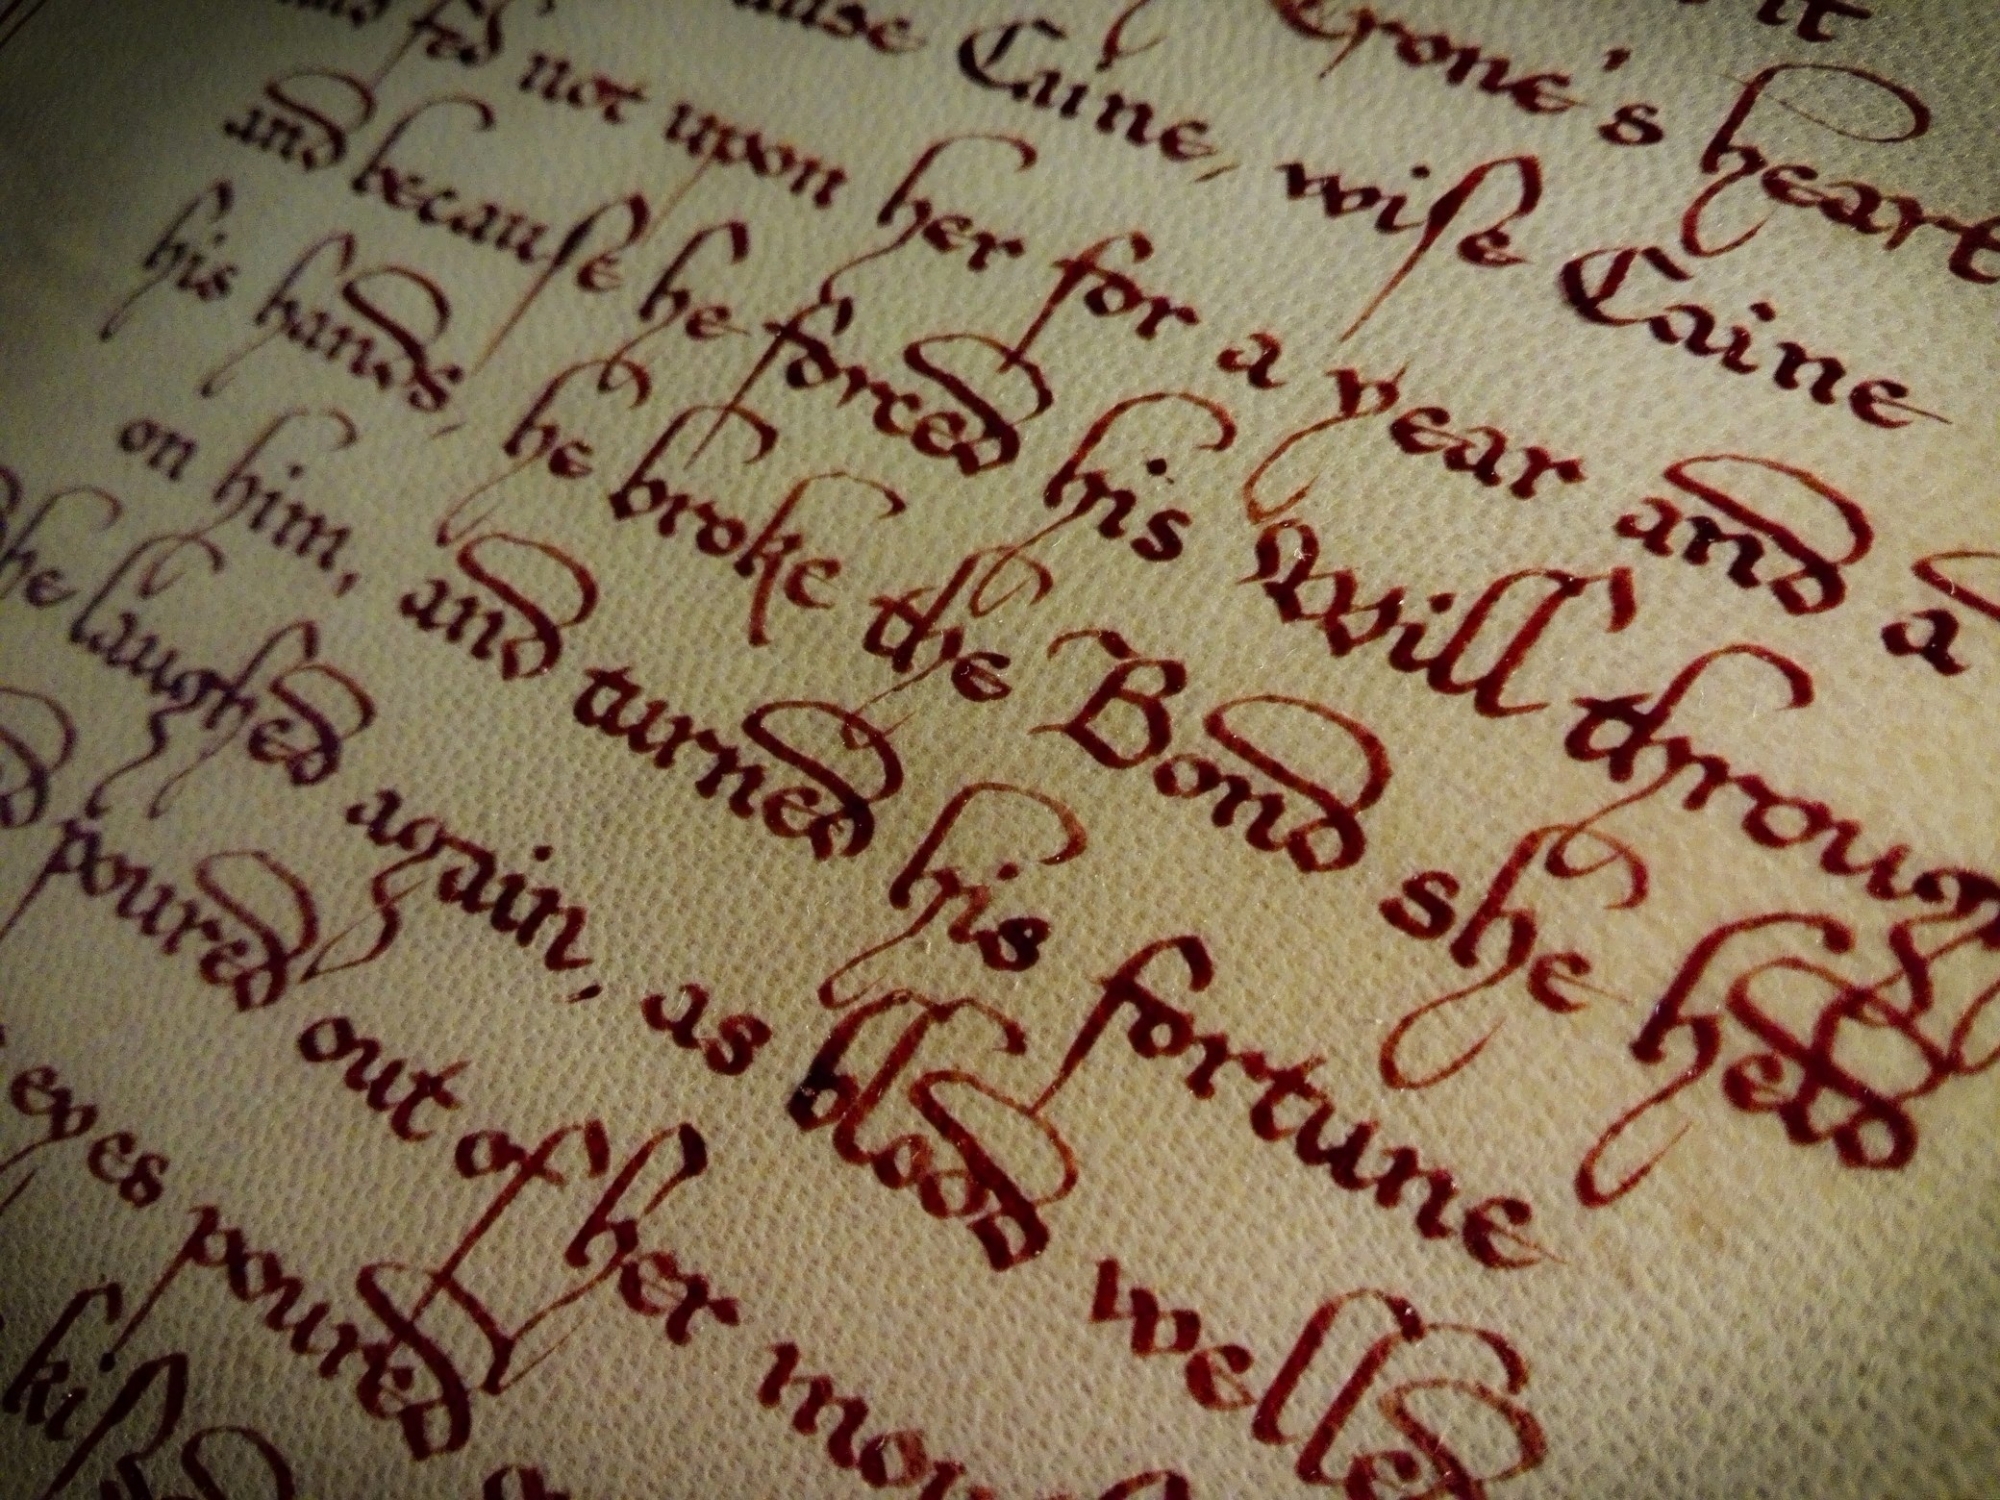 it
Crone's heart
Caine, wiſe Caine
fed not upon her for a year and a
and becauſe he forced his Will throug
his hands, he broke the Bond she held
on him, and turned his fortune
he laughed again, as blood wells
poured out of her mou
eyes poured
kiſſ